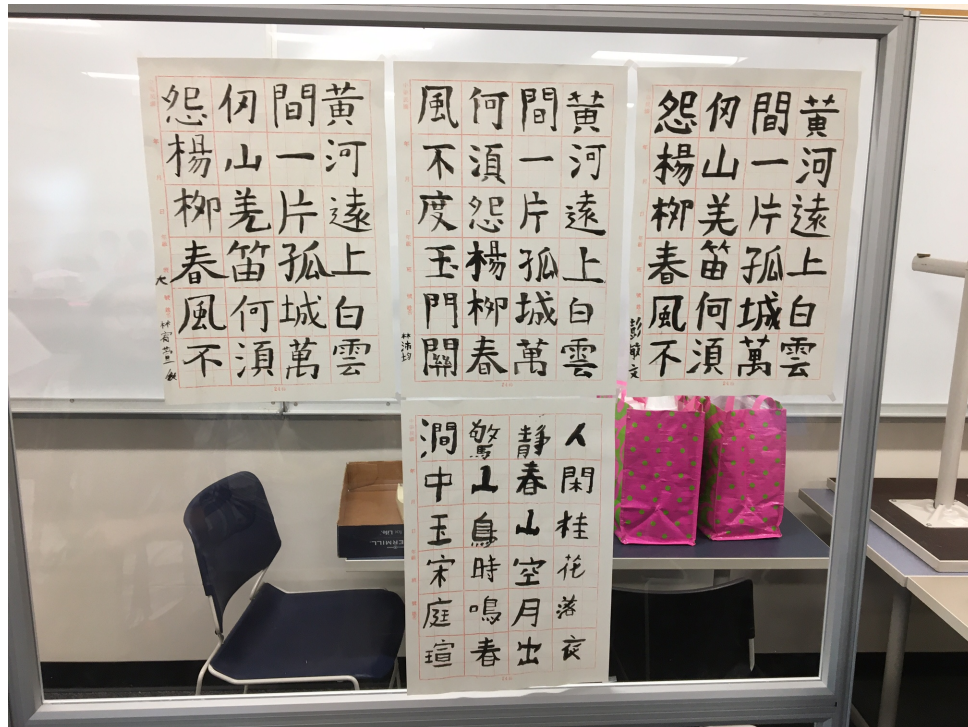 黃河遠上白雲
間一片孤城萬
仞山羌笛何湏
怨楊柳春風不
黃河遠上白雲
間一片孤城萬
何湏怨楊柳春
風不度玉門關
林沛均
黃河遠上白雲
間一片孤城萬
仞山美笛何湏
怨楊柳春風不
人閑桂花落夜
靜春山空月出
驚山鳥時鳴春
澗中玉宋庭瑄
ERMILL